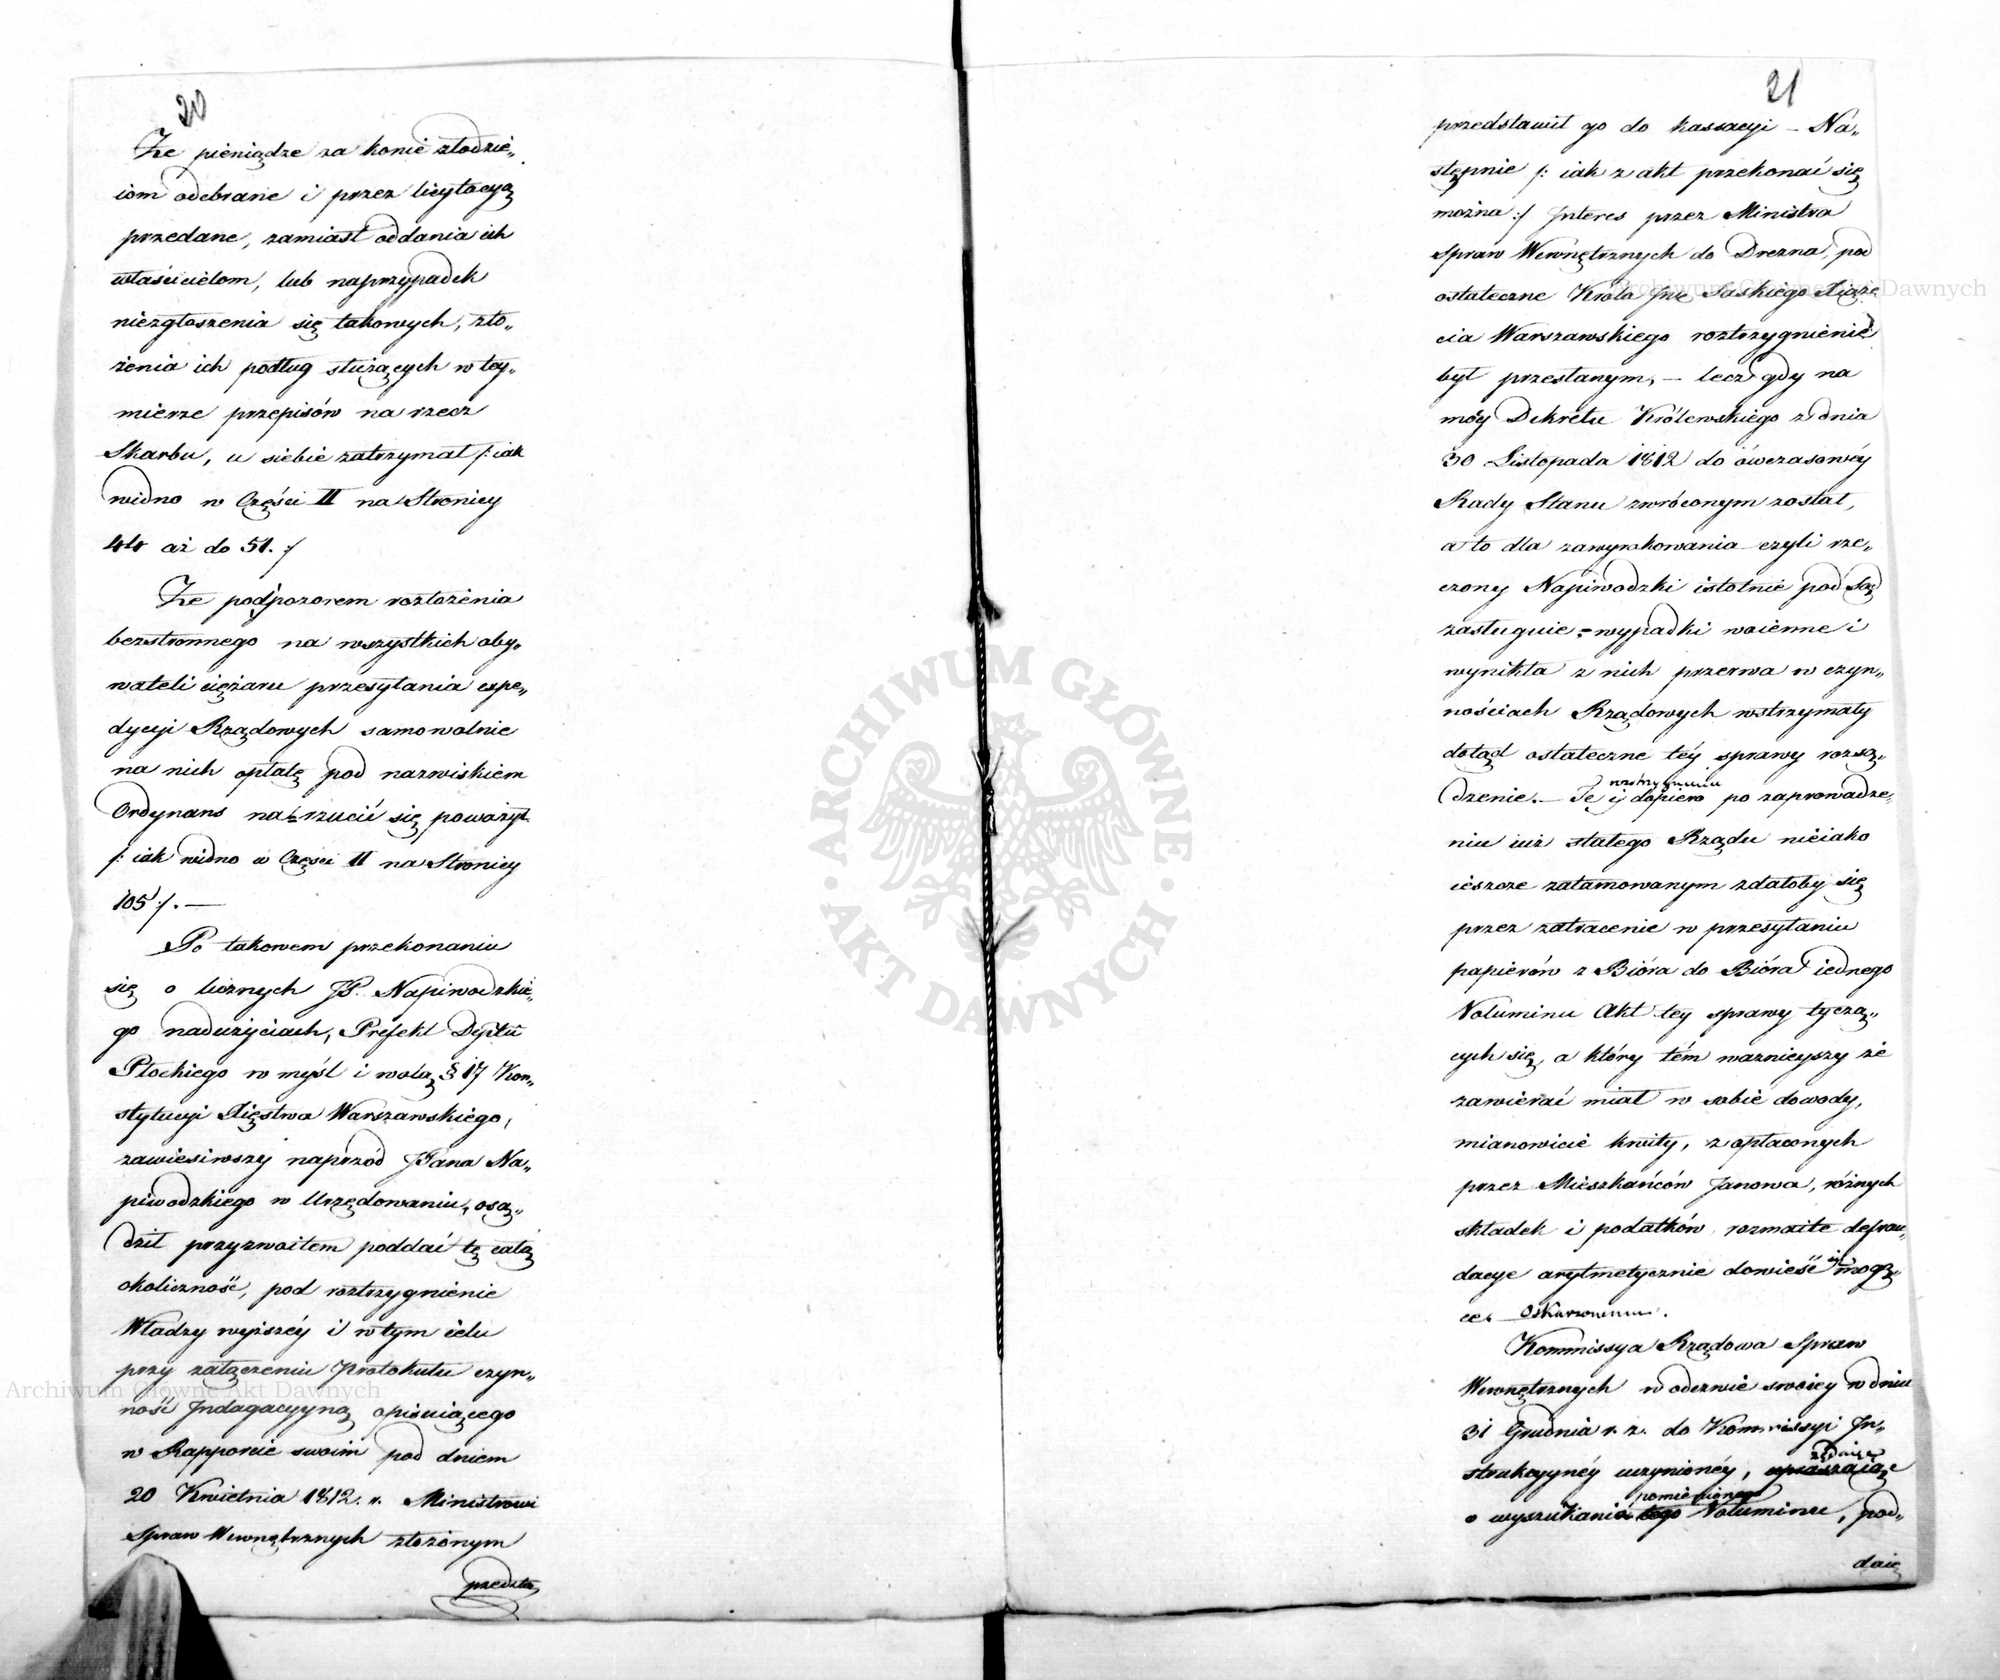 20
Że pieniądze za konie złodzie„
iom odebrane i przez licytacyą
przedane, zamiast oddania ich
właścicielom, lub naprzypadek
niezgłoszenia się takowych, zło„
żenia ich podług służących w tey„
mierze przepisów na rzecz
Skarbu, u siebie zatrzymał /: iak
widno w Części II na Stronicy
44 aż do 51. :/
Że podpozorem rozłożenia
bezstronnego na wszystkich oby„
wateli ciężaru przesyłania expe„
dycyi Rządowych samowolnie
na nich opłatę pod nazwiskiem
Ordynans narzucić się poważył
/: iak widno w Części II na Stronicy
105 :/. —
Po takowem przekonaniu
się o licznych JP. Napiwodzkie„
go nadużyciach, Prefekt Deptu
Płockiego w myśl i wolą § 17 Kon„
stytucyi Xięstwa Warszawskiego,
zawiesiwszy naprzód JPana Na„
piwodzkiego w Urzędowaniu, osą„
dził przyzwoitem poddać tę całą
okoliczność, pod roztrzygnienie
Władzy wyższéy i w tym celu
przy załączeniu Protokułu czyn„
ność Indagacyyną opisuiącego
w Rapporcie swoim pod dniem
20 Kwietnia 1812. r. Ministrowi
Spraw Wewnętrznych złożonym
przedsta„
21
przedstawił go do kassacyi – Na„
stępnie /: iak z akt przekonać się
można :/ Interes przez Ministra
Spraw Wewnętrznych do Drezna, pod
ostateczne Króla Jmc Saskiego Xiąże
cia Warszawskiego roztrzygnienie
był przesłanym, – lecz gdy na
móy Dekretu Królewskiego z dnia
30 Listopada 1812 do ówczasowéy
Rady Stanu zwróconym został,
a to dla zawyrokowania czyli rze„
czony Napiwodzki istotnie pod Sąd
zasługuie = wypadki woienne i
wynikła z nich przerwa w czyn„
nościach Rządowych wstrzymały
dotąd ostateczne téy sprawy rozsą„
dzenie. – Te dopiero po zaprowadze„
niu iuż stałego Rządu nieiako
ieszcze zatamowanym zdałoby się
przez zatracenie w przesyłaniu
papierów z Bióra do Bióra iednego
Voluminu Akt tey sprawy tyczą„
cych się, a który tém ważnieyszy że
zawierać miał w sobie dowody,
mianowicie kwity, z opłaconych
przez Mieszkańców Janowa, różnych
składek i podatków rozmaite defrau„
dacye arytmetycznie dowieść mogą„
ce.
Kommissya Rządowa Spraw
Wewnętrznych w odezwie swoiey w dniu
31 Grudnia r. z. do Kommissyi In„
strukcyynéy uczynionéy, żądaiąc
o wyszukanie pomienionego Voluminu, pod„
daie
ARCHIWUM GŁÓWNE
· AKT DAWNYCH ·
Archiwum Główne Akt Dawnych
Archiwum Główne Akt Dawnych